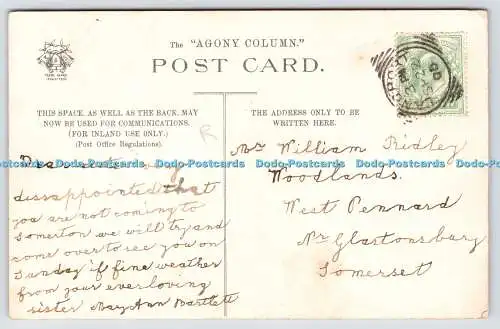 The "AGONY COLUMN."
POST CARD.
THIS SPACE, AS WELL AS THE BACK, MAY
NOW BE USED FOR COMMUNICATIONS.
(FOR INLAND USE ONLY.)
(Post Office Regulations).
THE ADDRESS ONLY TO BE
WRITTEN HERE.
R
Dear
dissappointed that
you are not coming to
Somerton we will try and
come over to see you on
Sunday if fine weather
from your ever loving
sister MaryAnn Bartlett
Mr William Ridley
Woodlands.
West Pennard
Nr Glastonsbury
Somerset
Dodo-Postcards Dodo-Postcards Dodo-Postcards Dodo-Postcards Dodo-Postcards